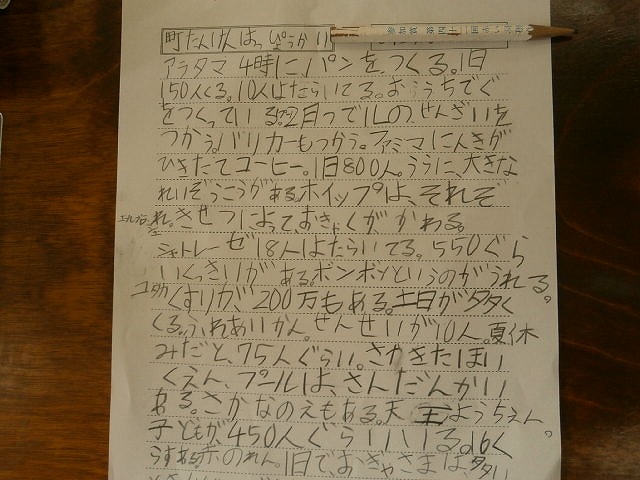 町たんけんはっぴょうかい
アラタマ4時に、パンを、つくる。1日
150人くる。10人はたらいてる。おううちでぐ
をつくっている。 月って ILの、せんざいを
つかう。バリカーもつかう。ファミマにんきが
ひきたてコーヒー。1日800人。ううに、大きな
れいぞうこうがある。ホイップは、それぞ
れ。させつによっておきゃくがかわる。
シャトレーゼ18人はたらいてる。550ぐら
いくっきいがある。ボンボンというのがうれる。
ユタカ くすりが、200万もある。土日が多く
くる。ふれあいかん。せんせいが10人。夏休
みだと、75人ぐらい。さかきたほい
くえん、プールは、さんだんかい
ある。さかなのえもある。天王ようちえん。
子どもが、450人ぐらいいる。16く
赤のれん。1日で、おきゃさまは、多い